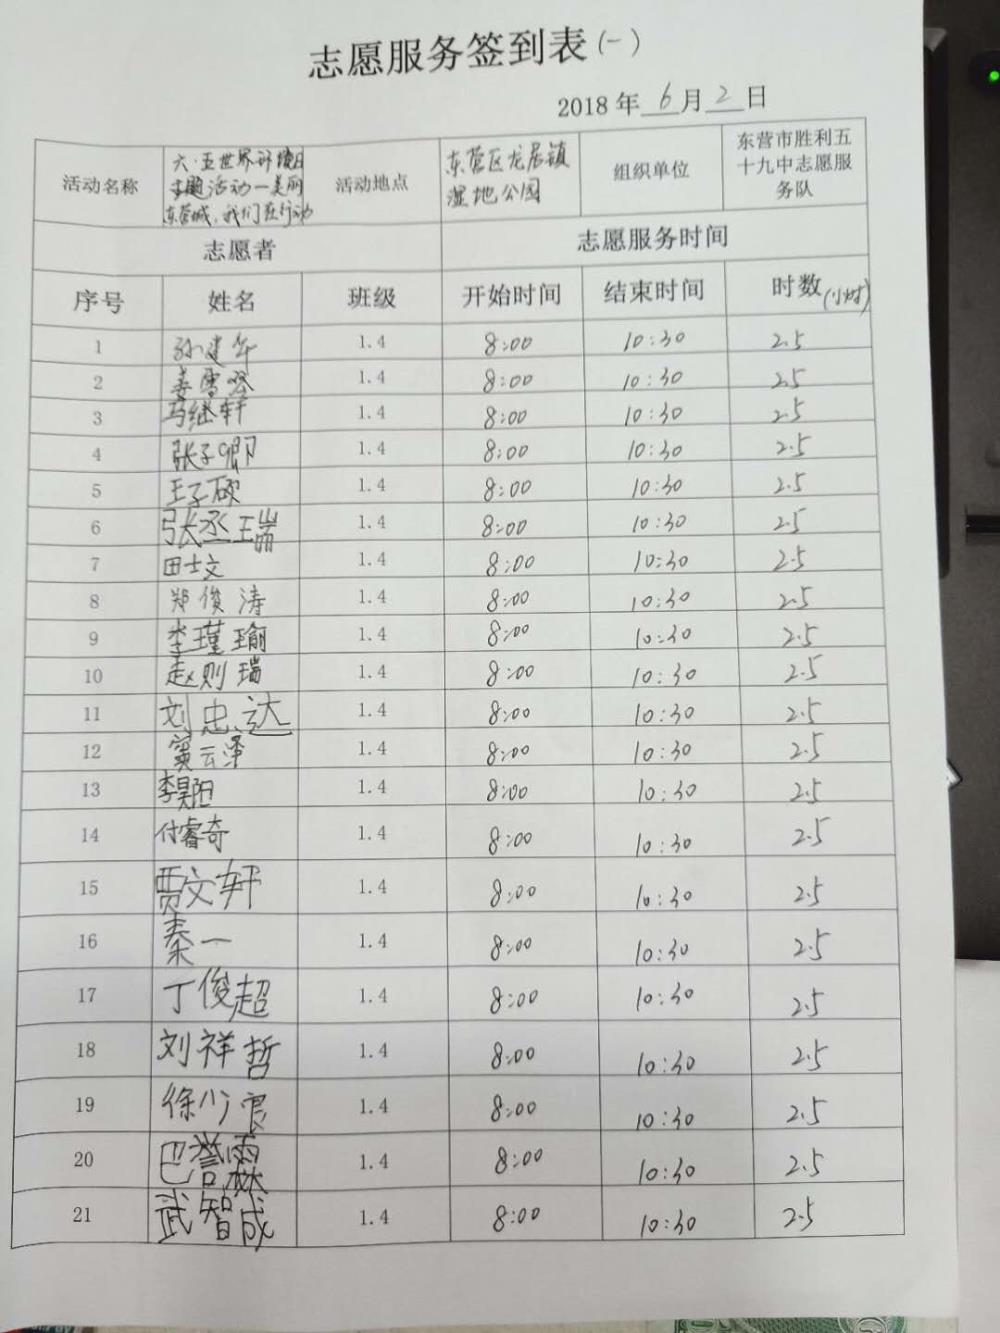 志愿服务签到表(一)
2018年 6 月 2 日
活动名称 六·五世界环境日 主题活动—美丽 东营城,我们在行动 活动地点 东营区龙居镇 湿地公园 组织单位 东营市胜利五 十九中志愿服 务队
志愿者 志愿服务时间
序号 姓名 班级 开始时间 结束时间 时数(小时)
1 孙建年 1.4 8:00 10:30 2.5
2 姜雪 1.4 8:00 10:30 2.5
3 马继轩 1.4 8:00 10:30 2.5
4 张子卿 1.4 8:00 10:30 2.5
5 王子硕 1.4 8:00 10:30 2.5
6 张丞瑞 1.4 8:00 10:30 2.5
7 田士文 1.4 8:00 10:30 2.5
8 郑俊涛 1.4 8:00 10:30 2.5
9 李瑾瑜 1.4 8:00 10:30 2.5
10 赵则瑞 1.4 8:00 10:30 2.5
11 刘忠达 1.4 8:00 10:30 2.5
12 窦云泽 1.4 8:00 10:30 2.5
13 李昊阳 1.4 8:00 10:30 2.5
14 付睿奇 1.4 8:00 10:30 2.5
15 贾文轩 1.4 8:00 10:30 2.5
16 秦一 1.4 8:00 10:30 2.5
17 丁俊超 1.4 8:00 10:30 2.5
18 刘祥哲 1.4 8:00 10:30 2.5
19 徐少良 1.4 8:00 10:30 2.5
20 巴誉霖 1.4 8:00 10:30 2.5
21 武智成 1.4 8:00 10:30 2.5